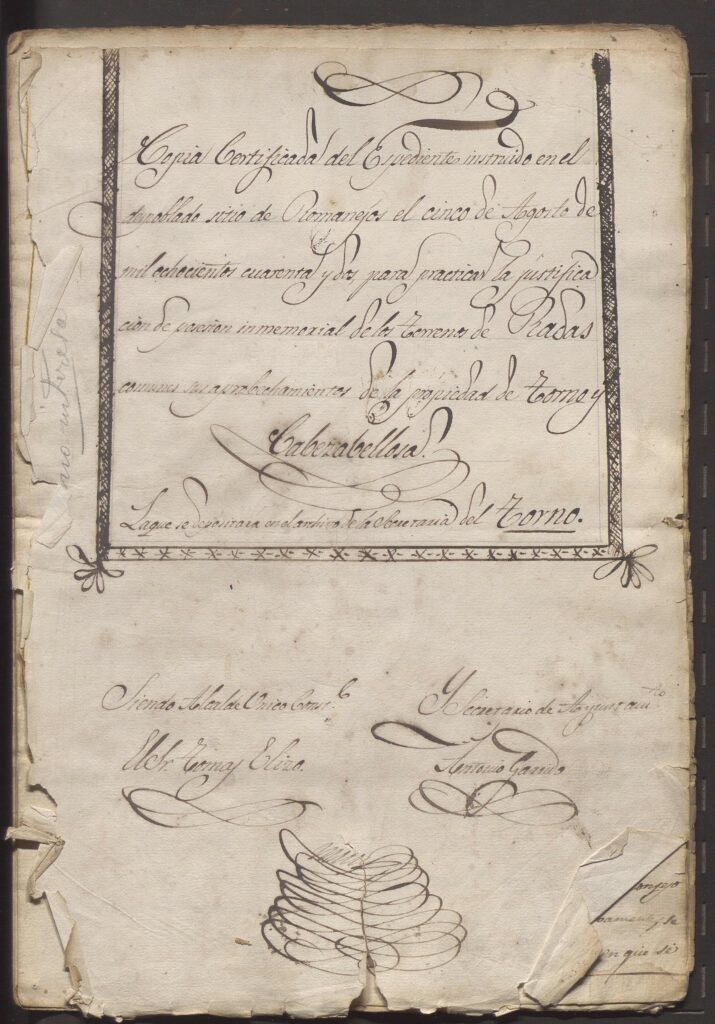 Copia Certificada del Espediente instruido en el
despoblado sitio de Romanejos el cinco de Agosto de
mil ochocientos cuarenta y dos para practicar la justifica
cion de posesion inmemorial de los Terrenos de Radas
comunes sus aprobechamientos de la propiedad de Torno y
Cabezabellosa.
La que se depositara en el archivo de la Secretaria del Torno.
Siendo Alcalde Unico Const.l
El Sr. Tomas Elizo.
Y Secretario de Ayuntami.to
Antonio Garrido
se
en que se